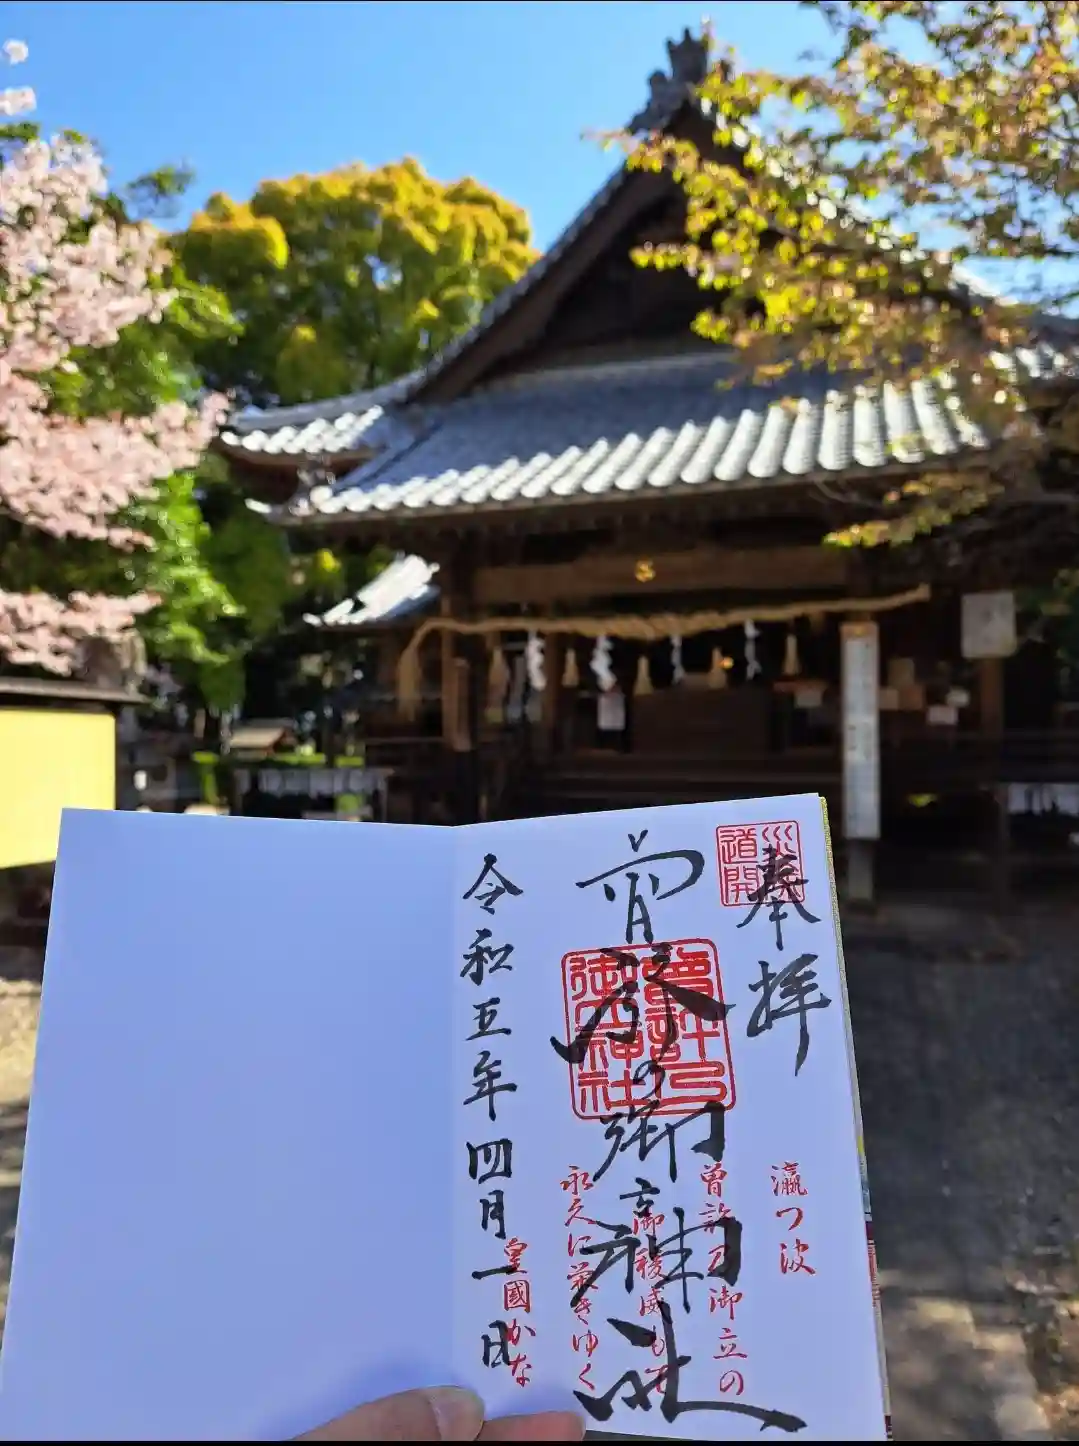 奉拝
道開
瀛つ波
曽許乃御立の
御稜威もて
永久に栄きゆく
皇國かな
曽許の御立神社
曽許乃
御立神社
令和五年四月一日